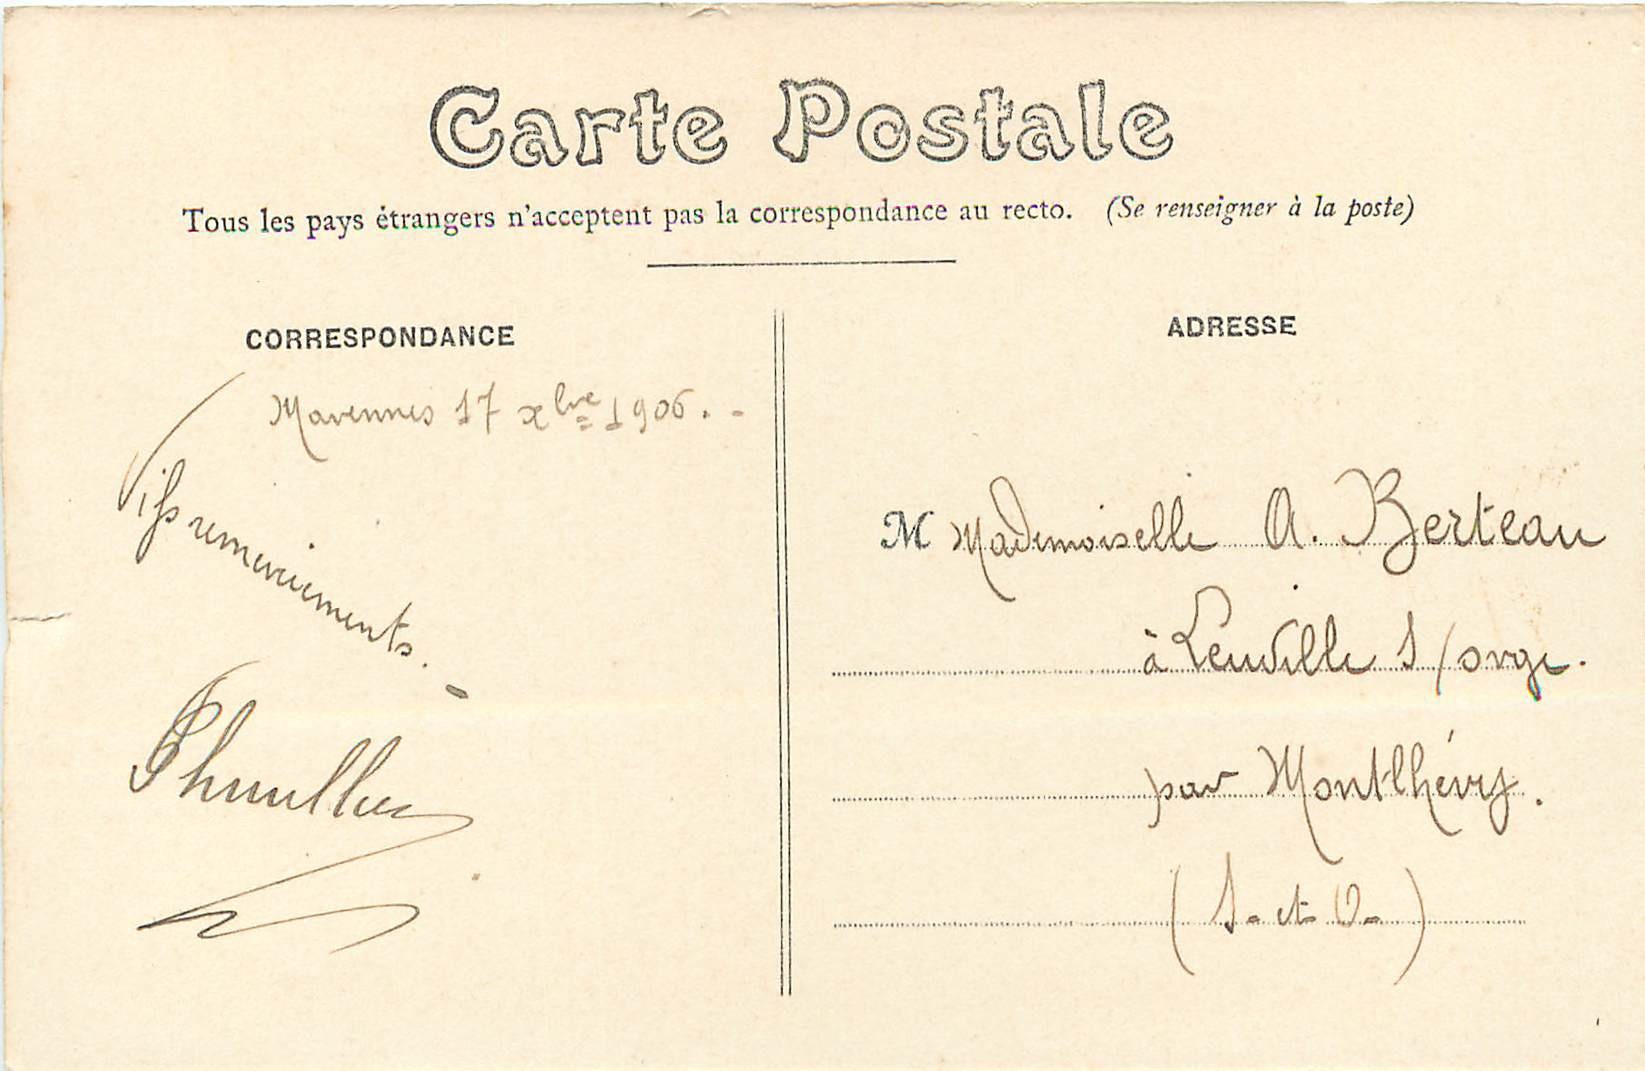 Carte Postale
Tous les pays étrangers n'acceptent pas la correspondance au recto. (Se renseigner à la poste)
CORRESPONDANCE
17 xbre 1906. -
Vifs remerciements. -
ADRESSE
M Mademoiselle A. Berteau
à Leuville s/orge.
par Montlhéry.
(S. et O.)